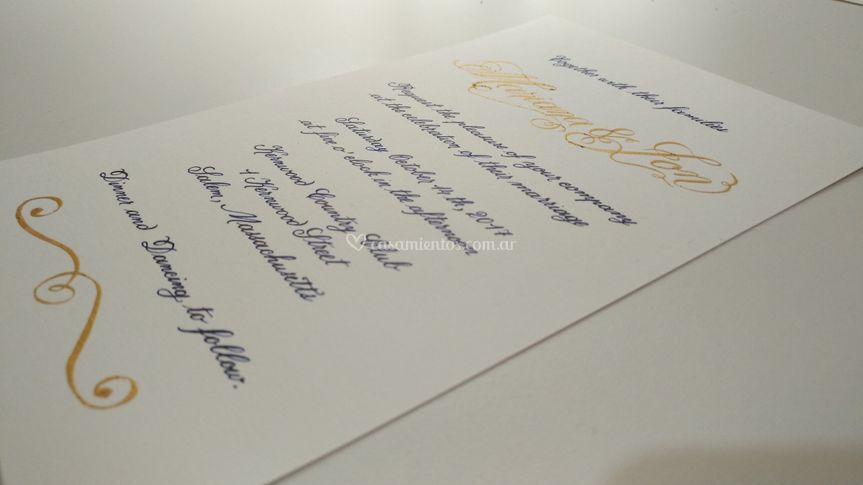 Together with their families
Mariana & Jon
Request the pleasure of your company
at the celebration of their marriage
Saturday October 14th, 2017
at five o'clock in the afternoon
Kernwood Country Club
1 Kernwood Street
Salem, Massachusetts
Dinner and Dancing to follow.
casamientos.com.ar